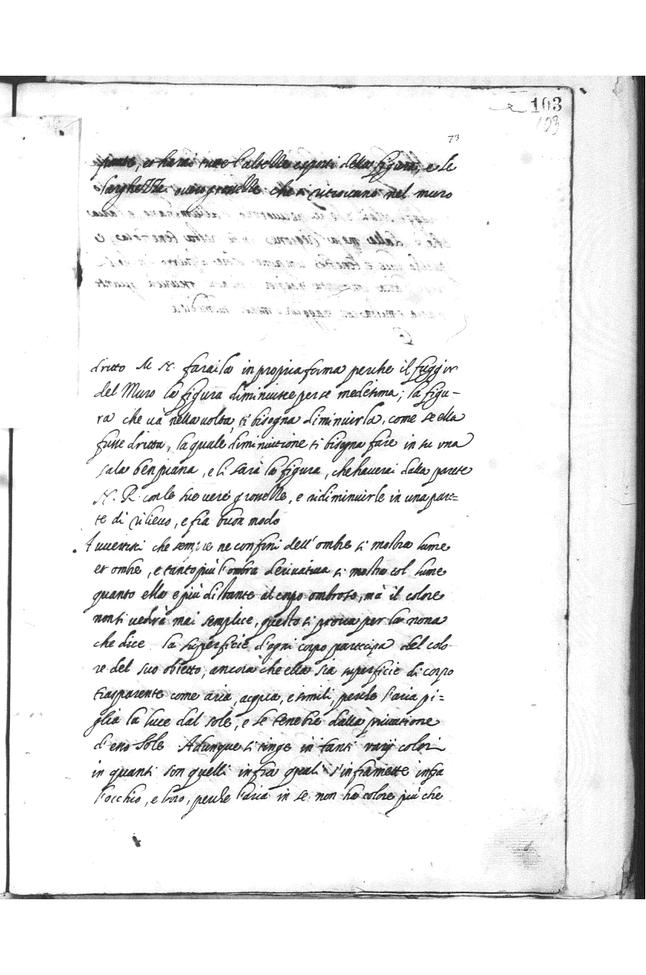 103
103
73
piante, et harai tutte l'altezze e sporti della figura, e le
larghezze, over grossezze che si ritrovano nel muro
dritto M N. farai la in propria forma perche il fuggir
del Muro la figura diminuisce per se medesima; la figu-
ra che và nella volta, ti bisogna diminuirla, come se ella
fusse dritta, la quale diminuitione ti bisogna fare in su una
sala ben piana, e lì sarà la figura, che haverai dalla parete
N. R. con le sue vere grossezze, e ridiminuirle in una pare-
te di rilievo, e fia buon modo
Avvertisci che sempre ne confini dell'ombre si mostra lume
et ombre, e tanto più l'ombra derivativa si mostra col lume
quanto ella e più distante al corpo ombroso, mà il colore
non si vedrà mai semplice, questo si prova per la nona
che dice. la superficie d'ogni corpo partecipa del colo-
re del suo obietto, ancorà che ella sia superficie di corpo
trasparente come aria, acqua, e simili, perche l'aria pi=
glia la luce dal sole, e le tenebre dalla privatione
d'eßo Sole. Adunque si tinge in tanti varij colori
in quanti son quelli infra quali s'inframette infra
l'occhio, e loro, perche l'aria in se non ha colore più che